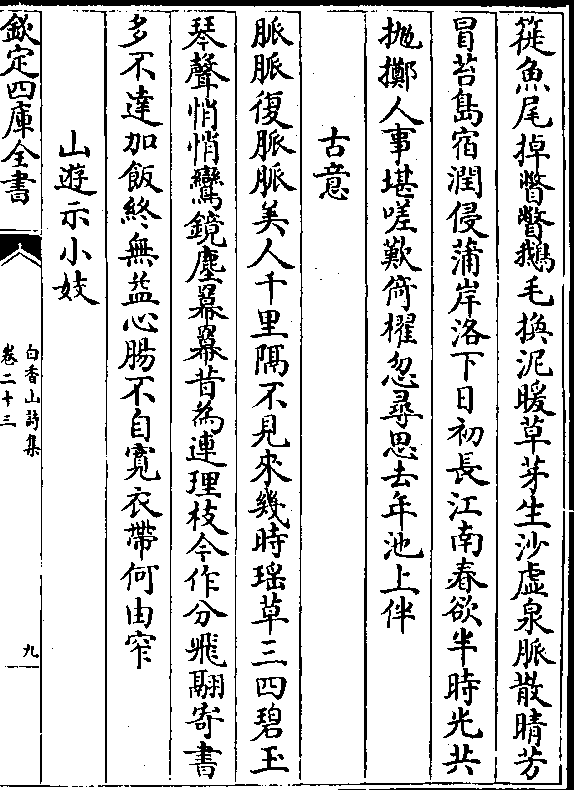 簁魚尾掉瞥瞥鵝毛換泥暖草芽生沙虛泉脈散晴芳
冒苔島宿潤侵蒲岸洛下日初長江南春欲半時光共
拋擲人事堪嗟歎倚櫂忽尋思去年池上伴
古意
脈脈復脈脈美人千里隔不見來幾時瑶草三四碧玉
琴聲悄悄鸞鏡塵羃羃昔為連理枝今作分飛翮寄書
多不達加飯終無益心腸不自寬衣帶何由窄
山遊示小妓
欽定四庫全書
白香山詩集
卷二十三
九